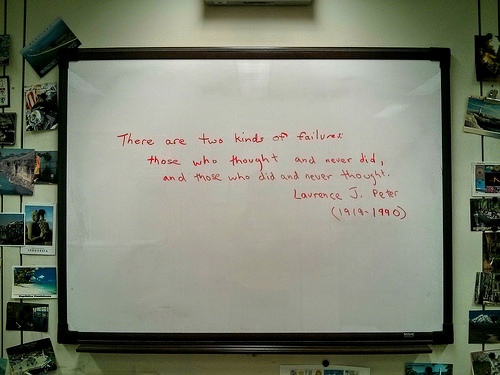 There are two kinds of failures:
those who thought and never did,
and those who did and never thought.
Laurence J. Peter
(1919-1990)